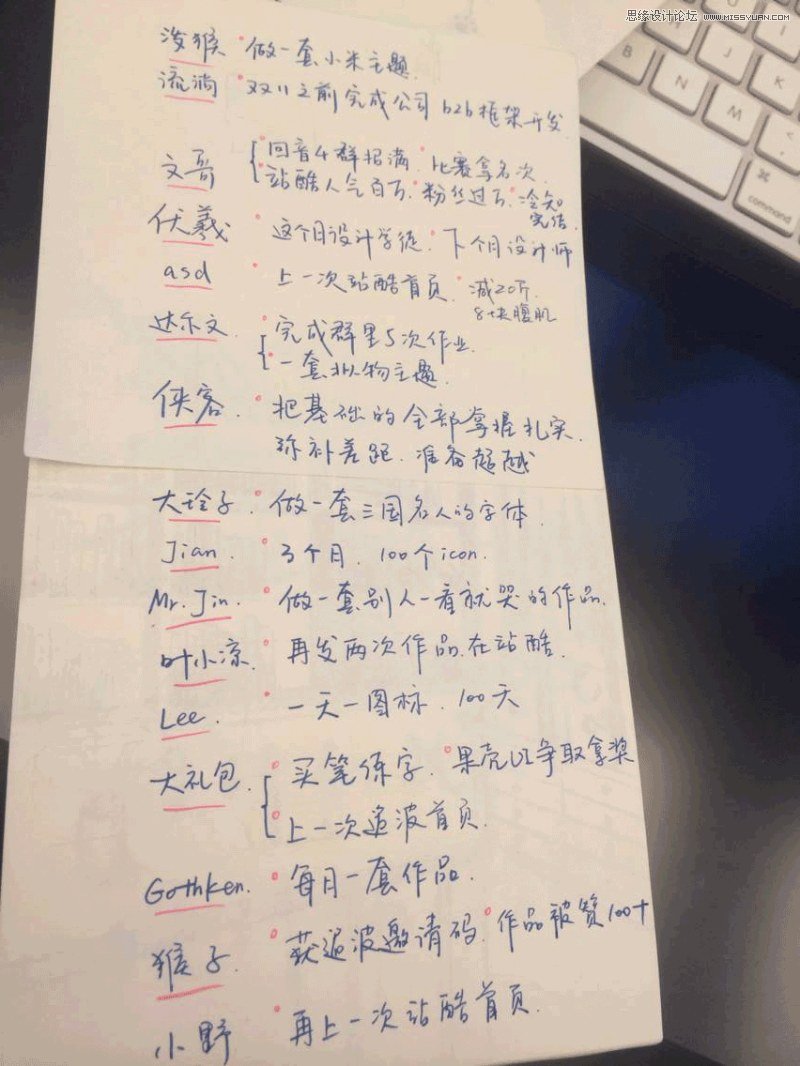 思缘设计论坛 WWW.MISSYUAN.COM
B N M
⌘
command
泼猴 做一套小米主题.
流淌 双11之前完成公司 b2b框架开发
文哥 回音4群招满. 比赛拿名次.
站酷人气百万. 粉丝过万. 冷知
完结.
伏羲 这个月设计学徒. 下个月设计师
asd 上一次站酷首页. 减20斤.
8块腹肌
达尔文. 完成群里5次作业.
一套拟物主题.
侠客. 把基础的全部掌握扎实.
弥补差距. 准备超越
大玲子. 做一套三国名人的字体.
Jian. 3个月. 100个icon.
Mr.Jin. 做一套别人一看就哭的作品.
叶小凉. 再发两次作品.在站酷.
Lee. 一天一图标. 100天
大礼包. 买笔练字. 果壳UI争取拿奖
上一次追波首页.
Gothken. 每月一套作品.
猴子. 获追波邀请码. 作品被赞100+
小野 再上一次站酷首页.